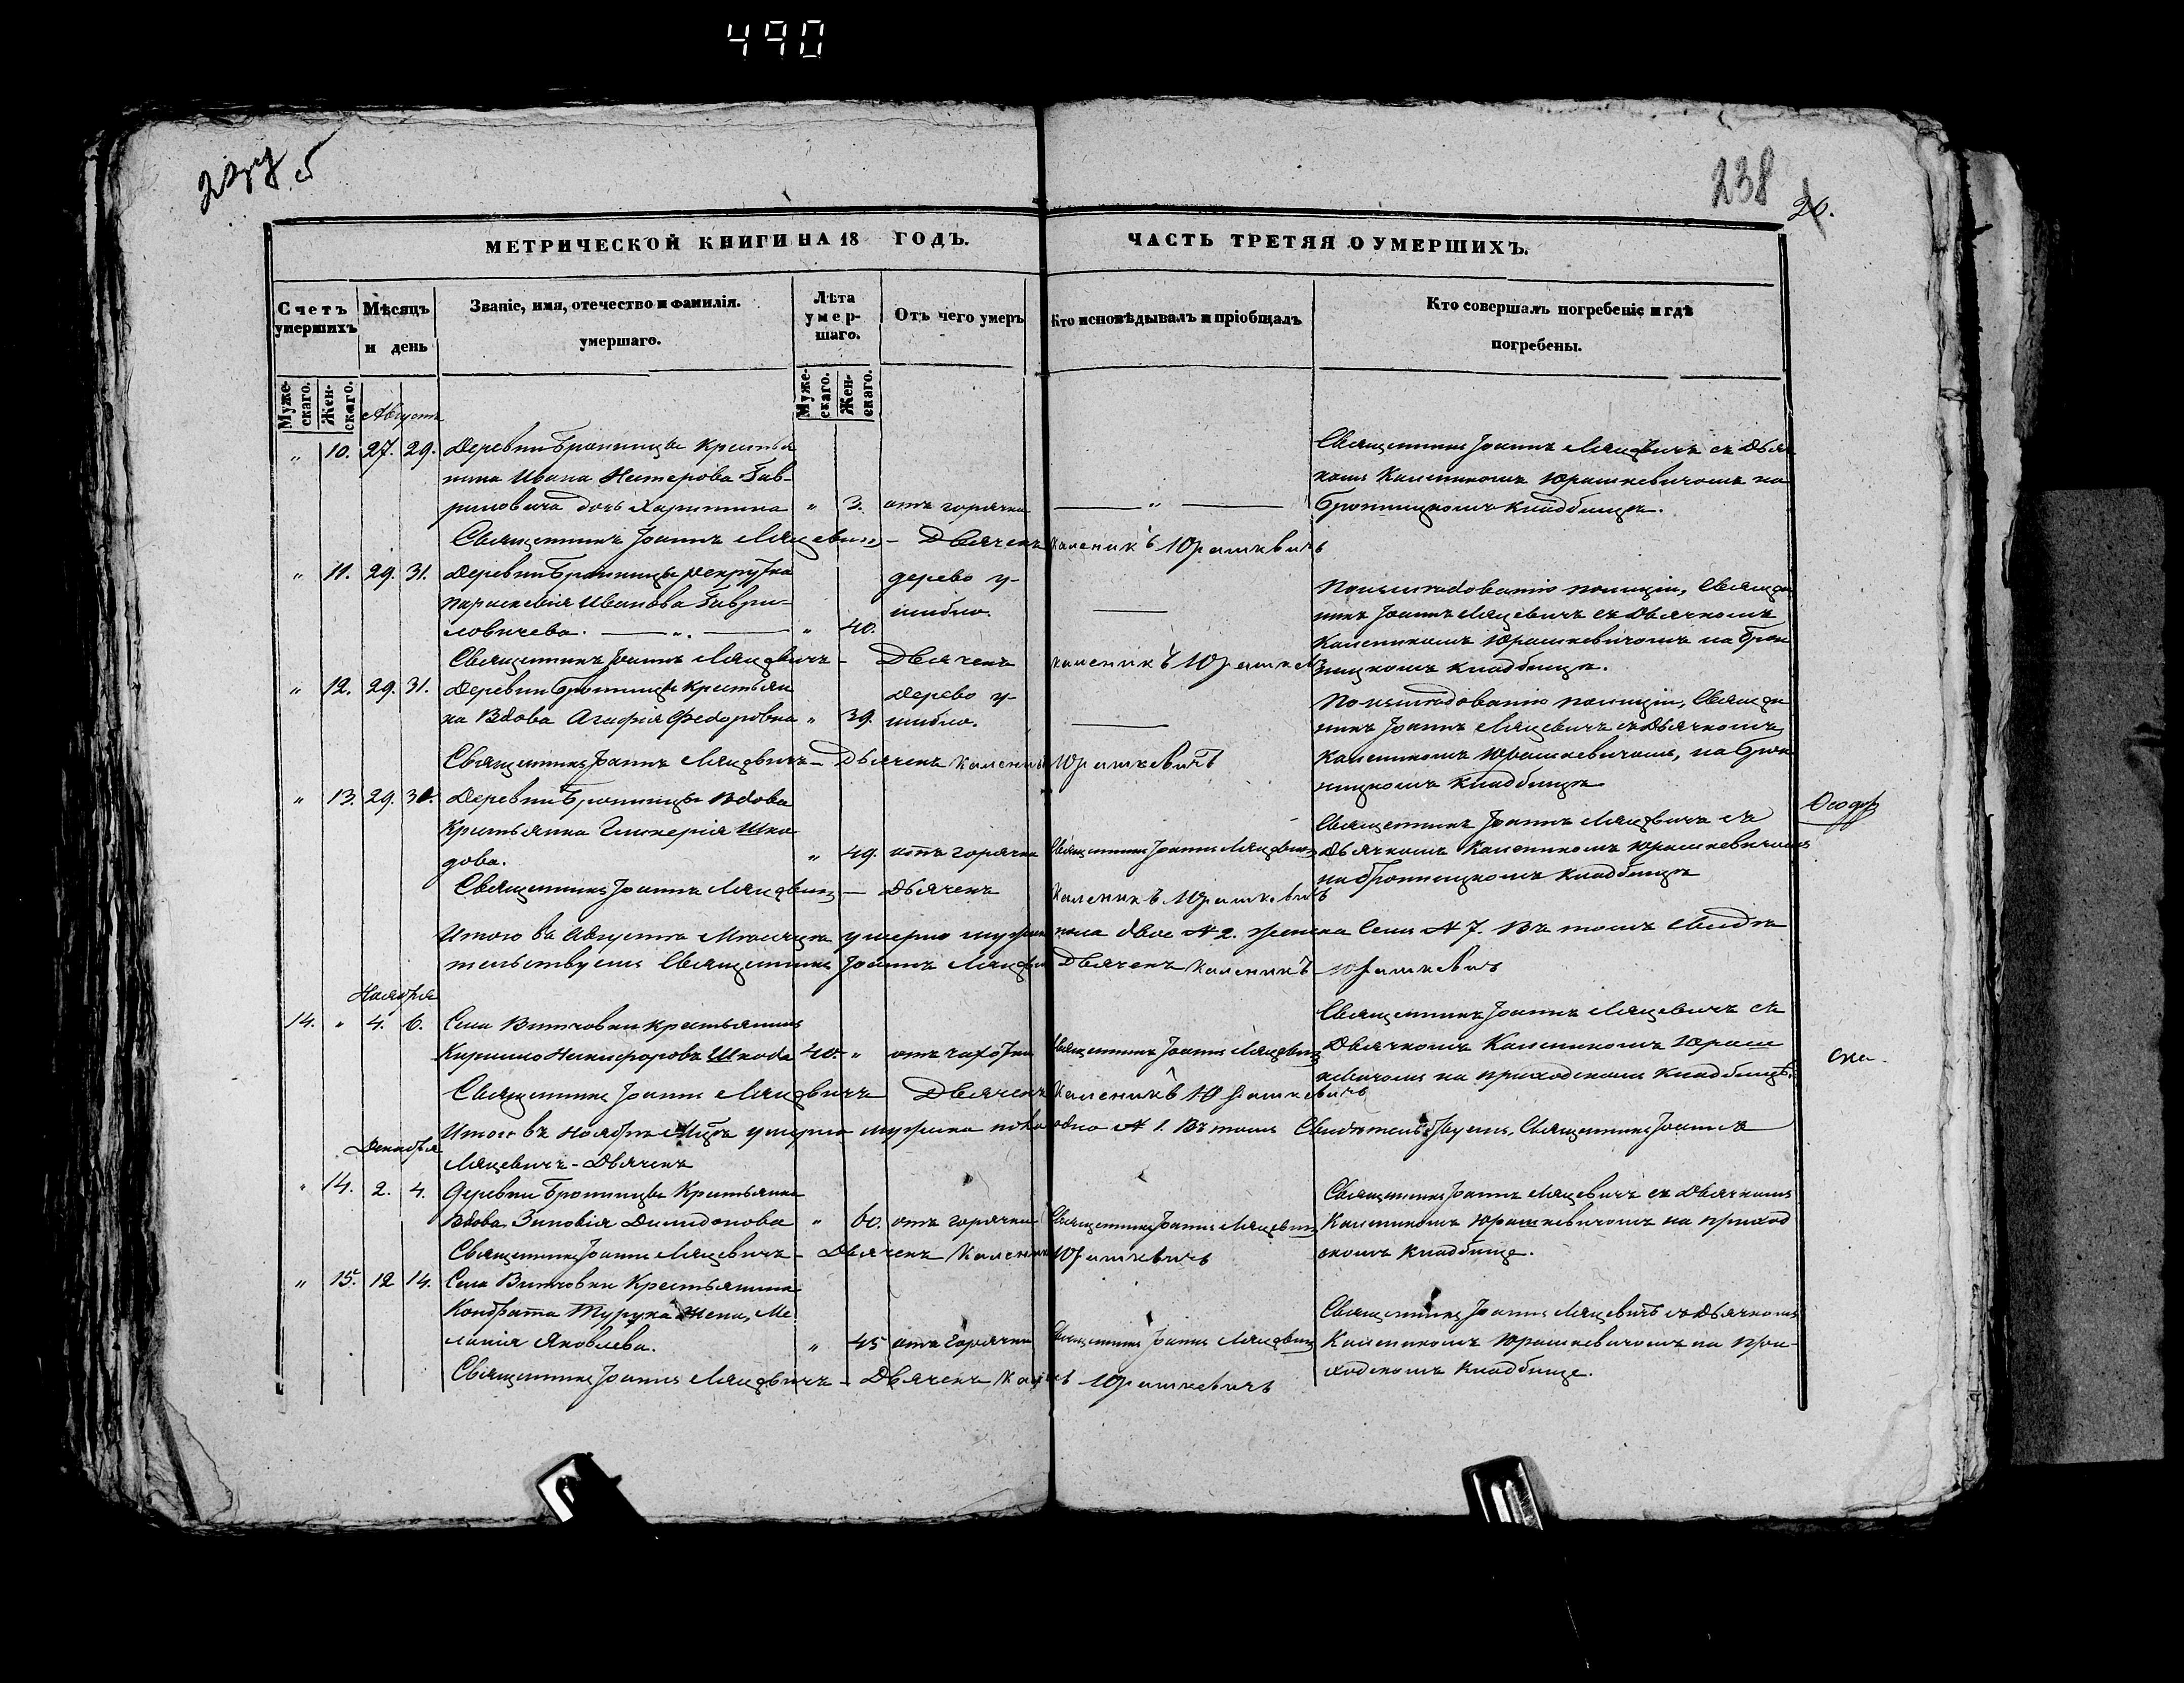 490
238
20.
МЕТРИЧЕСКОЙ КНИГИ НА 18 ГОДЪ.
ЧАСТЬ ТРЕТЯЯ О УМЕРШИХЪ.
Счетъ умершихъ
Мѣсяцъ и день
Званіе, имя, отечество и фамилія.
умершаго.
Лѣта умершаго.
Отъ чего умеръ
Кто исповѣдывалъ и пріобщалъ
Кто совершалъ погребеніе и гдѣ
погребены.
Мужескаго.
Женскаго.
Мужескаго.
Женскаго.
Августа
" 10. 27. 29. Деревни Бронницы Крестья
нина Ивана Нестерова Гав-
риловича дочь Харитина " 3. отъ горячки — " —
Священникъ Іоаннъ Ляцевичъ съ Дьяч
комъ Калеником Юрашкевичомъ на
Бронницкомъ Кладбищѣ.
Священникъ Іоаннъ Ляцевичъ - Дьячекъ Каленикъ Юрашкевичъ
" 11. 29. 31. Деревни Бронницы рекрутка
Параскевія Иванова Гаври-
ловичева. — " — " 40.
дерево у-
шибло. —
По изслѣдованію полиціи, Священ
никъ Іоаннъ Ляцевичъ съ Дьячкомъ
Калеником Юрашкевичомъ на Брон
ницкомъ кладбищѣ.
Священникъ Іоаннъ Ляцевичъ - Дьячекъ Каленикъ Юрашкевичъ
" 12. 29. 31. Деревни Бронницы Крестьян
ка Вдова Агафія Федоровна " 39.
Дерево у-
шибло. —
По изслѣдованію полиціи, Священ
никъ Іоаннъ Ляцевичъ съ Дьячкомъ
Калеником Юрашкевичомъ, на Брон
ницкомъ Кладбищѣ
Священникъ Іоаннъ Ляцевичъ - Дьячекъ Каленикъ Юрашкевичъ
" 13. 29. 31. Деревни Бронницы Вдова
Крестьянка Гликерія Шко
дова. " 49. отъ горячки Священникъ Іоаннъ Ляцевичъ
Священникъ Іоаннъ Ляцевичъ съ
Дьячкомъ Калеником Юрашкевичомъ
на Бронницкомъ кладбищѣ
Священникъ Іоаннъ Ляцевичъ — Дьячекъ Каленикъ Юрашкевичъ
Итого въ Августѣ Мѣсяцѣ умерло мужска пола двое № 2. женска Семь № 7. Въ томъ Свидѣ
тельствуемъ Священникъ Іоаннъ Ляцевичъ Дьячекъ Каленикъ Юрашкевичъ
Ноября
14. " 4. 6. Села Витчовки крестьянинъ
Кирилло Никифоровъ Шкода 40. " отъ чахотки Священникъ Іоаннъ Ляцевичъ
Священникъ Іоаннъ Ляцевичъ съ
Дьячкомъ Калеником Юраш
кевичомъ на приходскомъ Кладбищѣ.
Священникъ Іоаннъ Ляцевичъ Дьячекъ Каленикъ Юрашкевичъ
Итого въ Ноябрѣ Мцѣ умерло мужска пола одно № 1. Въ томъ Свидѣтельствуемъ, Священникъ Іоаннъ
Ляцевичъ - Дьячекъ
Декабря
" 14. 2. 4. Деревни Бронницы Крестьянка
Вдова Зиновія Димидонова " 60. отъ горячки Священникъ Іоаннъ Ляцевичъ
Священникъ Іоаннъ Ляцевичъ съ Дьячкомъ
Калеником Юрашкевичомъ на приход
скомъ Кладбище.
Священникъ Іоаннъ Ляцевичъ - Дьячекъ Каленикъ Юрашкевичъ
" 15. 12 14. Села Витчовки Крестьянина
Кондрата Турука жена, Ме
ланія Яковлева. " 45 отъ Горячки Священникъ Іоаннъ Ляцевичъ
Священникъ Іоаннъ Ляцевичъ съ Дьячкомъ
Калеником Юрашкевичомъ на при-
ходскомъ Кладбище.
Священникъ Іоаннъ Ляцевичъ - Дьячекъ Юрашкевичъ